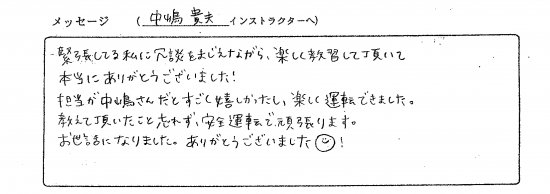 メッセージ ( 中嶋 貴夫 インストラクターへ)
緊張してる私に冗談をまじえながら、楽しく教習して頂いて
本当にありがとうございました!
担当が中嶋さんだとすごく嬉しかったし、楽しく運転できました。
教えて頂いたこと忘れず、安全運転で頑張ります。
お世話になりました。ありがとうございました☺!